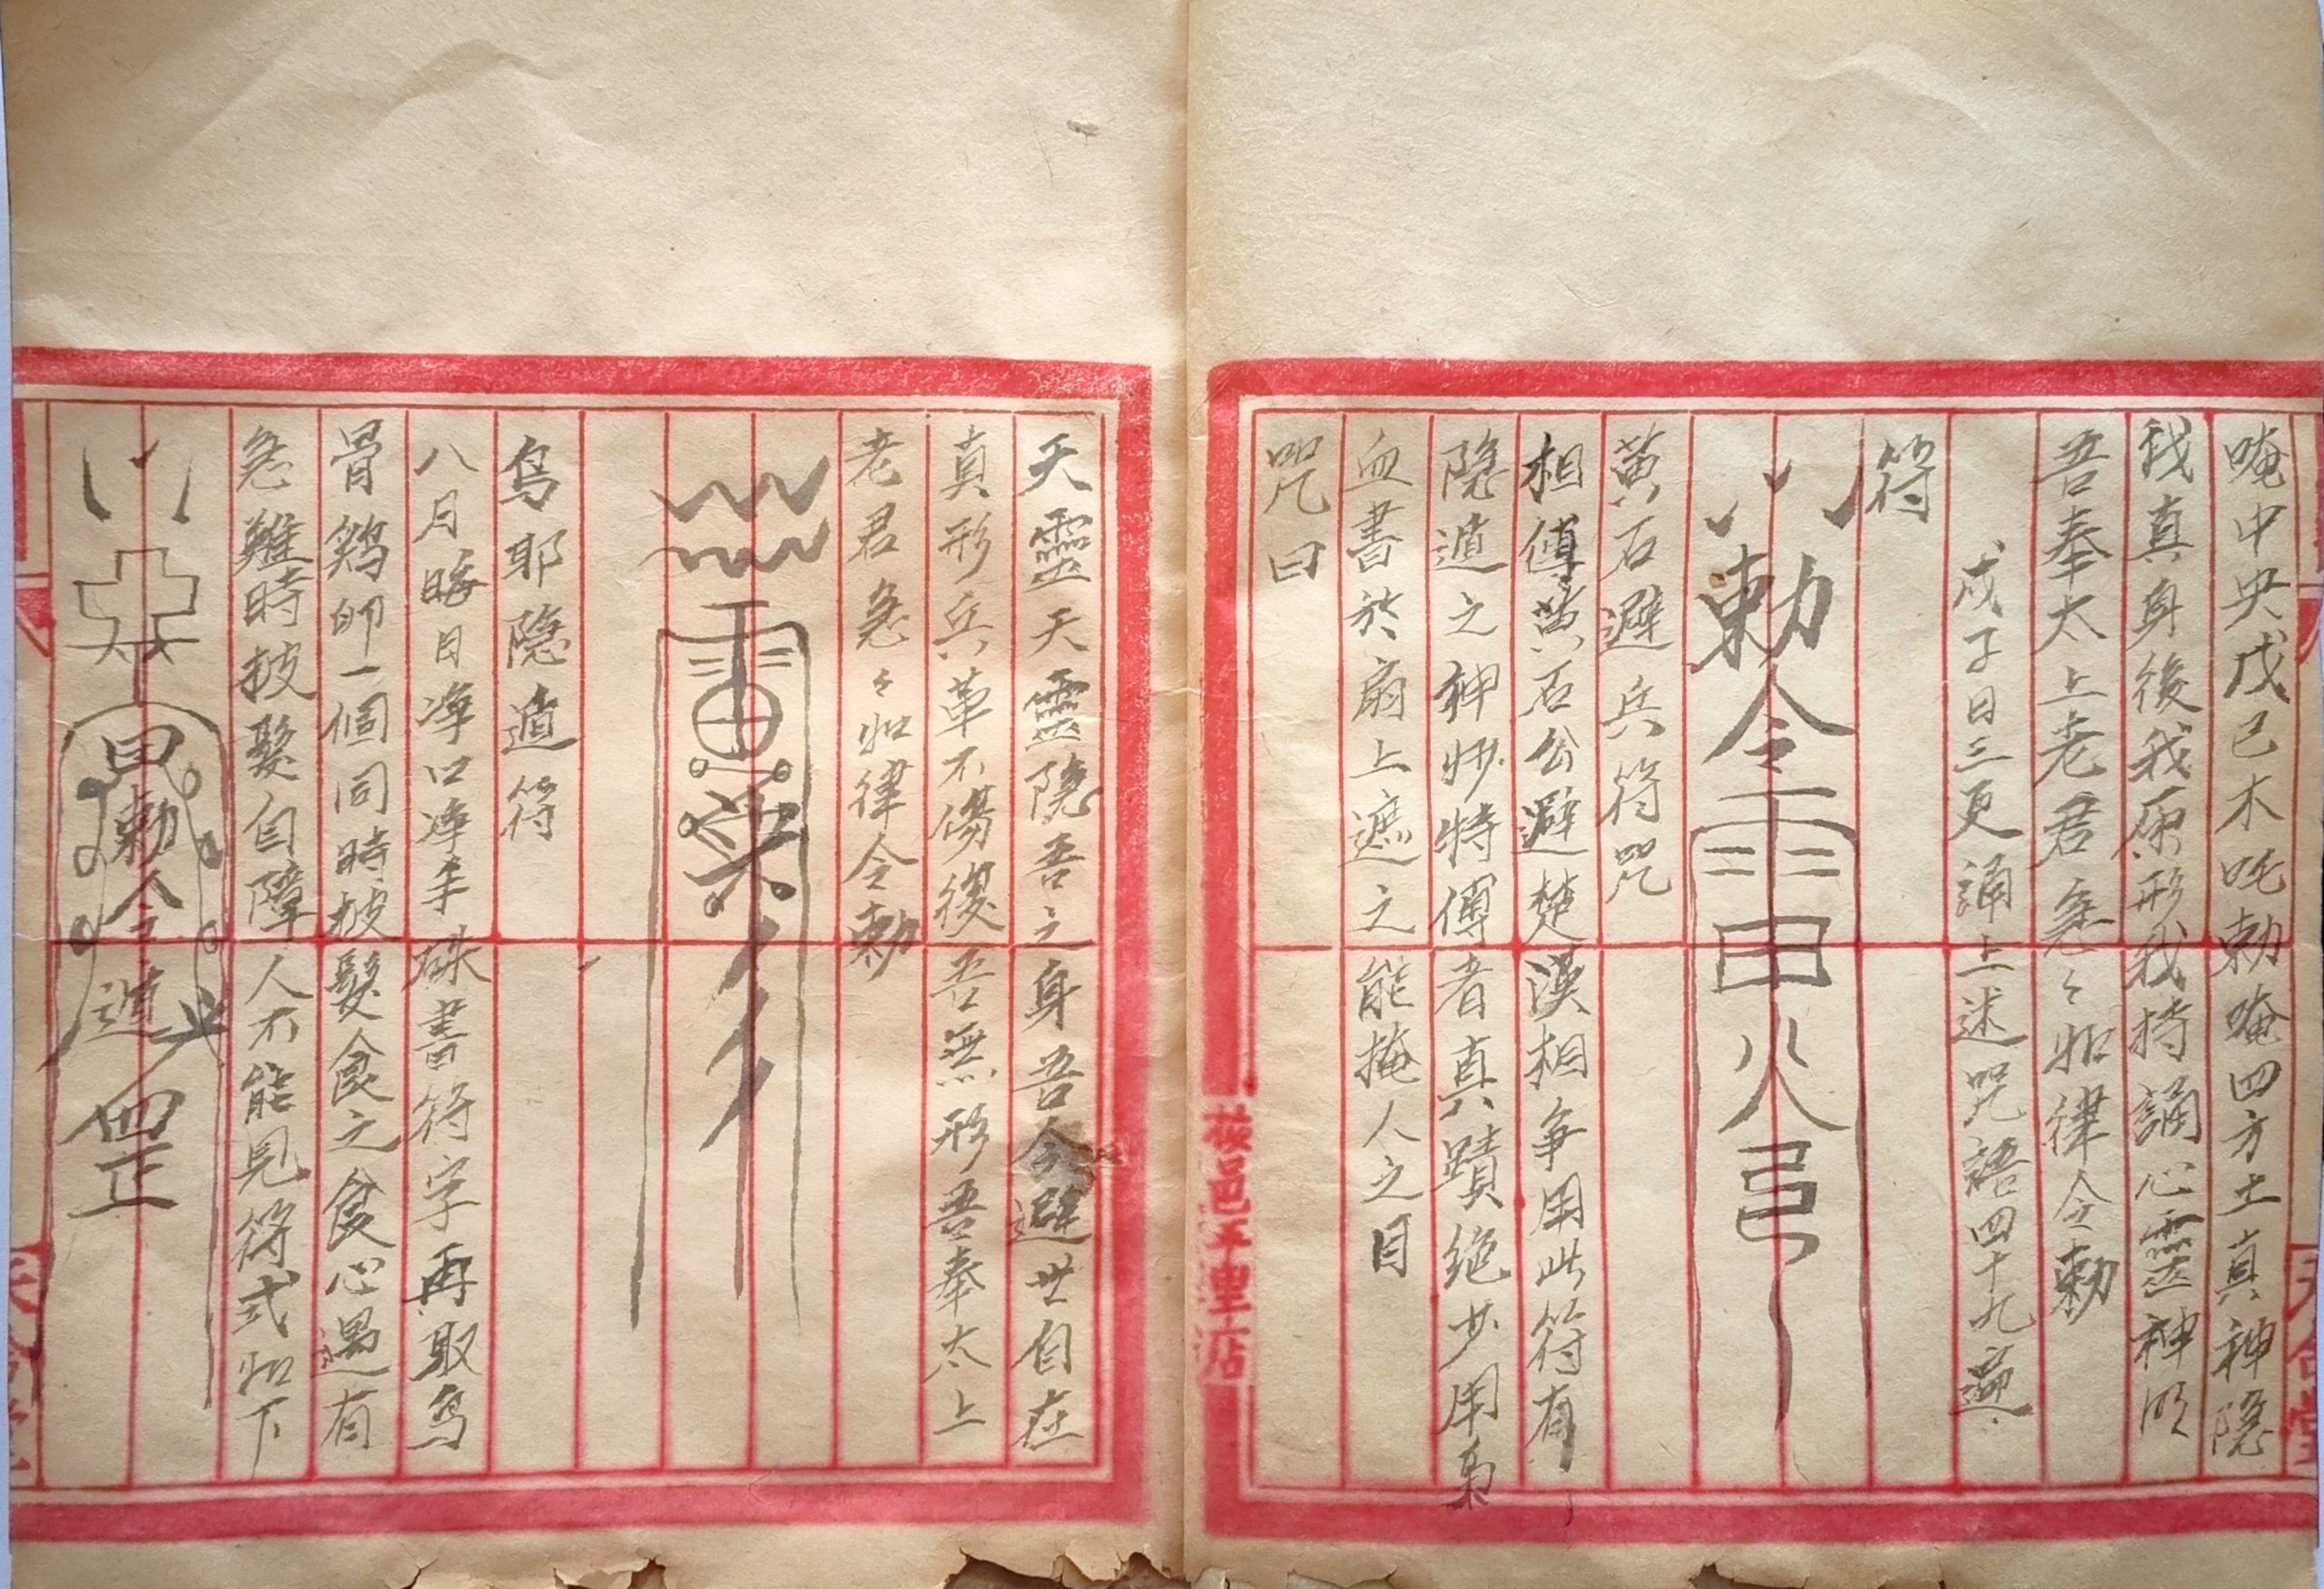 唵中央戊己木吒勅唵四方土真神隐
我真身後我原形我持誦心靈神明
吾奉太上老君急々如律令勅
戊子日三更誦上述咒語四十九遍
符
勅令
田火弓
黄石避兵符咒
相傳黄石公避楚漢相争用此符有
隐遁之神妙特傳者真蹟絶少用
血書於扇上遮之能掩人之目
咒曰
天靈天靈隐吾之身吾今避世自在
真形兵革不傷後吾無形吾奉太上
老君急々如律令勅
烏耶隐遁符
八月晦日净口净手硃書符字再取烏
骨鷄卵一個同時披髮食之食心遇有
急難時披髮自障人不能見符式如下
田勅令遁
四正